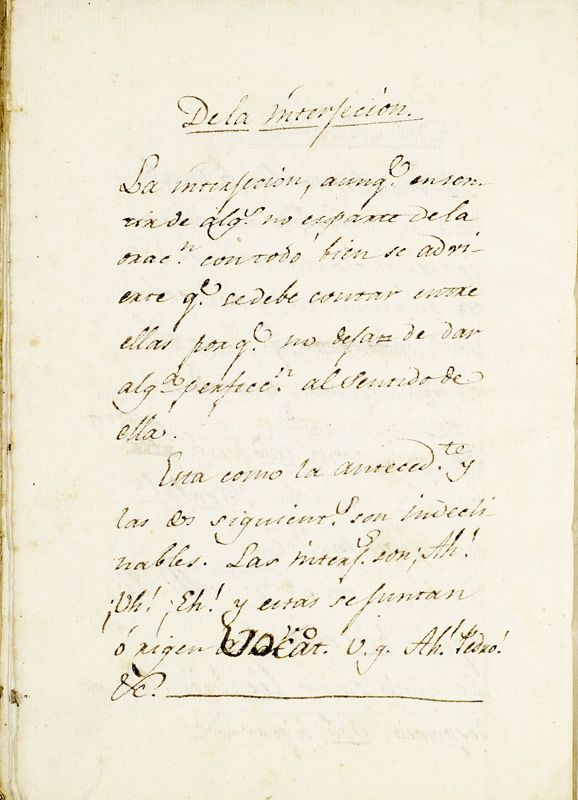 De la interjecion.
La interjecion, aunq.e en sen-
tir de alg.s no es parte de la
orac.n con todo bien se advi-
erte q.e se debe contar entre
ellas por q.e no dejan de dar
alg.a perfecc.n al sentido de
ella.
Esta como la anteced.te y
las dos siguient.s son indecli
nables. Las interj.s son ¡Ah!
¡Oh! ¡Eh! y estas se juntan
ó rigen Vocat. V. g. Ah! Pedro!
&c.